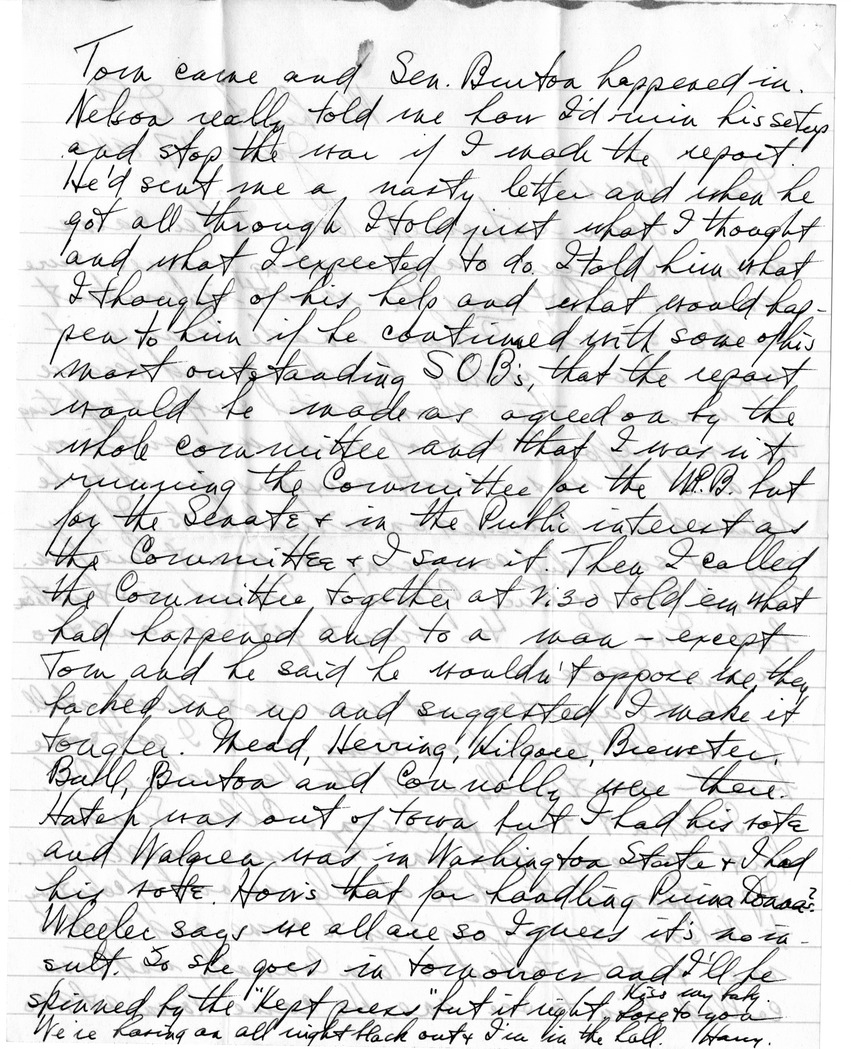 Tom came and Sen. Burton happened in.
Nelson really told me how I'd ruin his setup
and stop the war if I made the report.
He'd sent me a nasty letter and when he
got all through I told just what I thought
and what I expected to do. I told him what
I thought of his help and what would hap-
pen to him if he continued with some of his
most outstanding SOB's, that the report
would be made as agreed on by the
whole committee and that I was n't
running the Committee for the W.P.B. but
for the Senate & in the Public interest as
the Committee & I saw it. Then I called
the Committee together at 2:30 told em what
had happened and to a man - except
Tom and he said he wouldn't oppose me, they
backed me up and suggested I make it
tougher. Mead, Herring, Kilgore, Brewster,
Ball, Burton and Connally were there.
Hatch was out of town but I had his vote
and Walgren was in Washington State & I had
his vote. Hows that for handling Prima Donnas?
Wheeler says we all are so I guess it's no in-
sult. So she goes in tomorrow and I'll be
skinned by the "Kept press" but it right. Kiss my baby.
Love to you
We're having an all night black out & I'm in the hall. Harry.